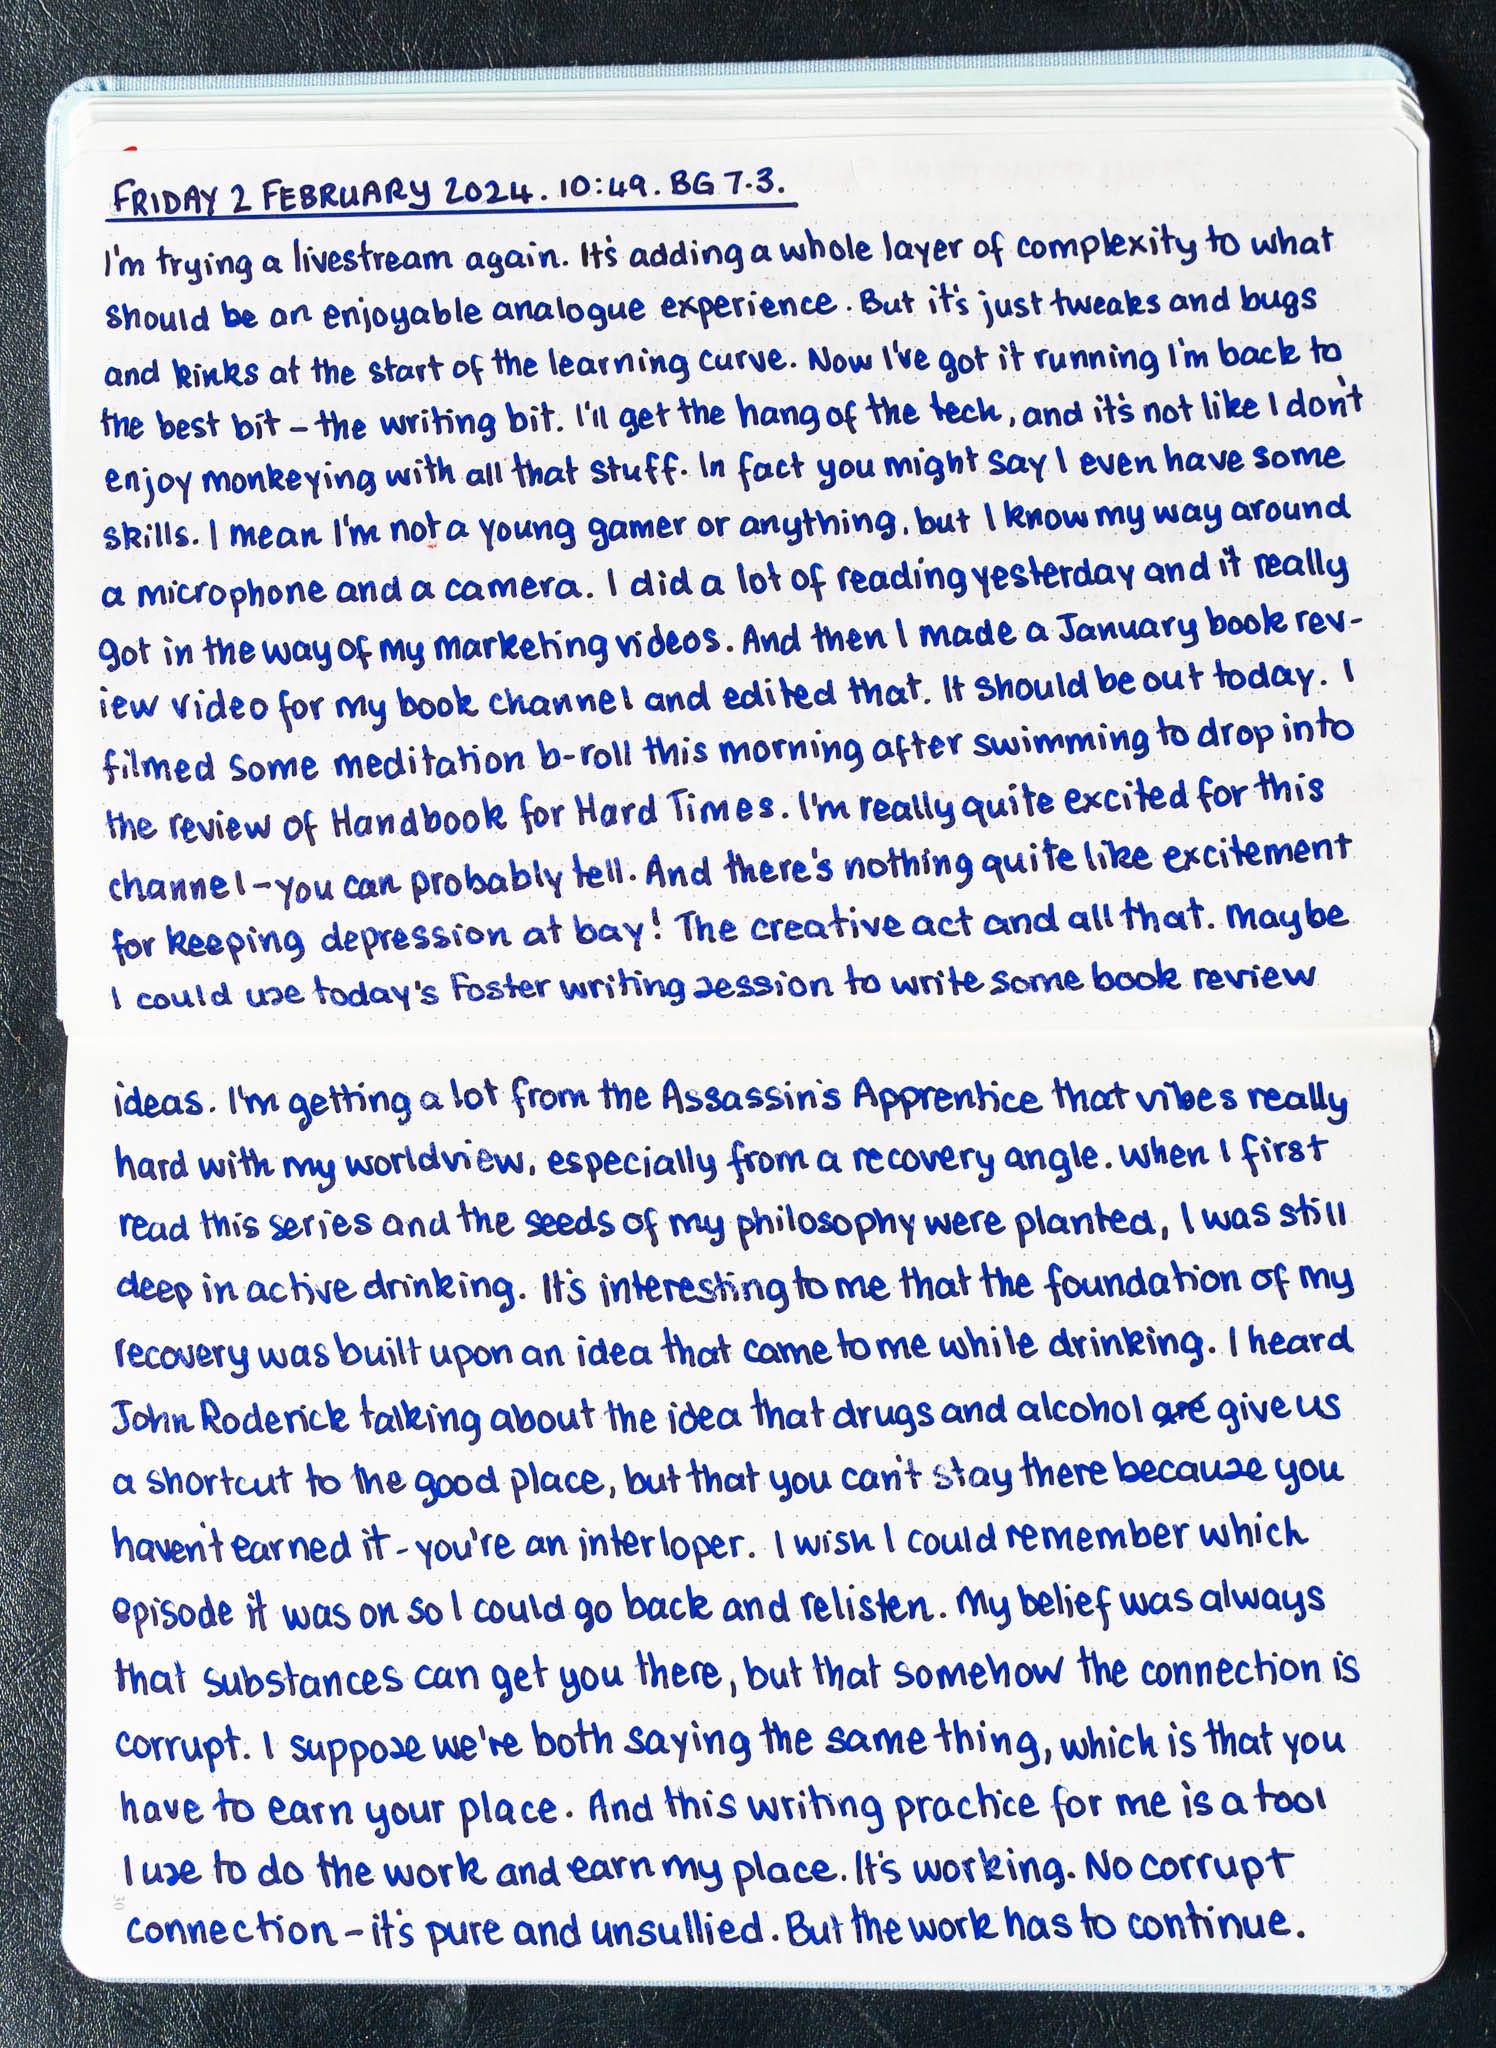 FRIDAY 2 FEBRUARY 2024. 10:49. BG 7.3.
I'm trying a livestream again. It's adding a whole layer of complexity to what
should be an enjoyable analogue experience. But it's just tweaks and bugs
and kinks at the start of the learning curve. Now I've got it running I'm back to
the best bit – the writing bit. I'll get the hang of the tech, and it's not like I don't
enjoy monkeying with all that stuff. In fact you might say I even have some
skills. I mean I'm not a young gamer or anything, but I know my way around
a microphone and a camera. I did a lot of reading yesterday and it really
got in the way of my marketing videos. And then I made a January book rev-
iew video for my book channel and edited that. It should be out today. I
filmed some meditation b-roll this morning after swimming to drop into
the review of Handbook for Hard Times. I'm really quite excited for this
channel – you can probably tell. And there's nothing quite like excitement
for keeping depression at bay! The creative act and all that. Maybe
I could use today's Foster writing session to write some book review
ideas. I'm getting a lot from the Assassin's Apprentice that vibes really
hard with my worldview, especially from a recovery angle. When I first
read this series and the seeds of my philosophy were planted, I was still
deep in active drinking. It's interesting to me that the foundation of my
recovery was built upon an idea that came to me while drinking. I heard
John Roderick talking about the idea that drugs and alcohol are give us
a shortcut to the good place, but that you can't stay there because you
haven't earned it – you're an interloper. I wish I could remember which
episode it was on so I could go back and relisten. My belief was always
that substances can get you there, but that somehow the connection is
corrupt. I suppose we're both saying the same thing, which is that you
have to earn your place. And this writing practice for me is a tool
I use to do the work and earn my place. It's working. No corrupt
connection – it's pure and unsullied. But the work has to continue.
30